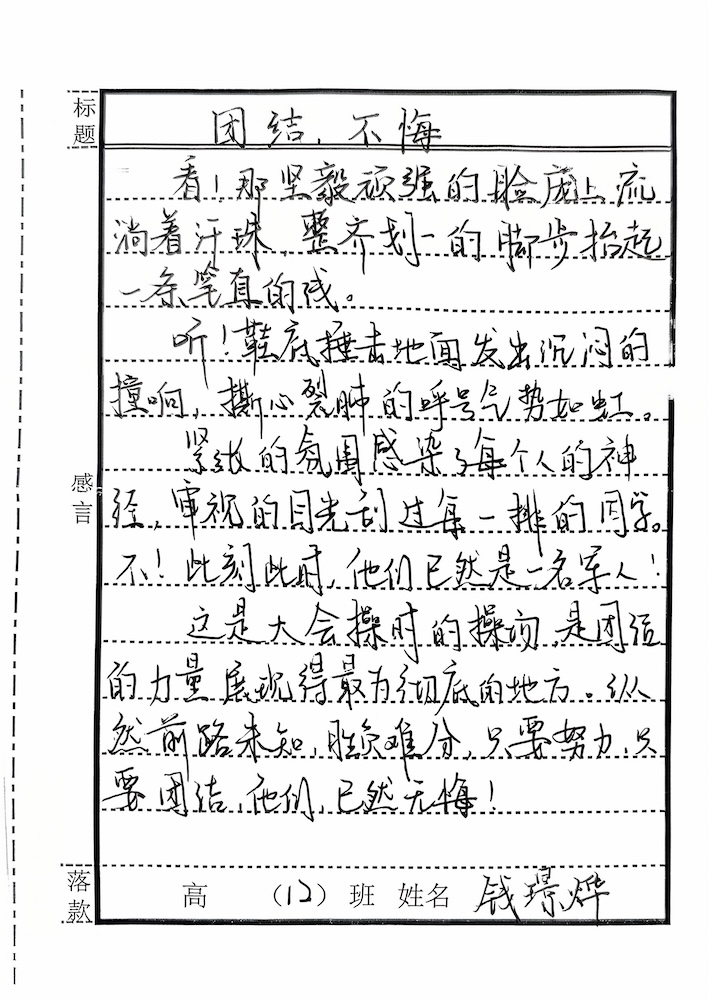 标题
团结，不悔
看！那坚毅顽强的脸庞上流
淌着汗珠，整齐划一的脚步抬起
一条笔直的线。
听！鞋底捶击地面发出沉闷的
撞响，撕心裂肺的呼号气势如虹。
感言
紧张的氛围感染了每个人的神
经，审视的目光刮过每一排的同学。
不！此刻此时，他们已然是一名军人！
这是大会操时的操场，是团结
的力量展现得最为彻底的地方。纵
然前路未知，胜负难分，只要努力，只
要团结，他们，已然无悔！
落款
高 （12）班 姓名 钱璟烨